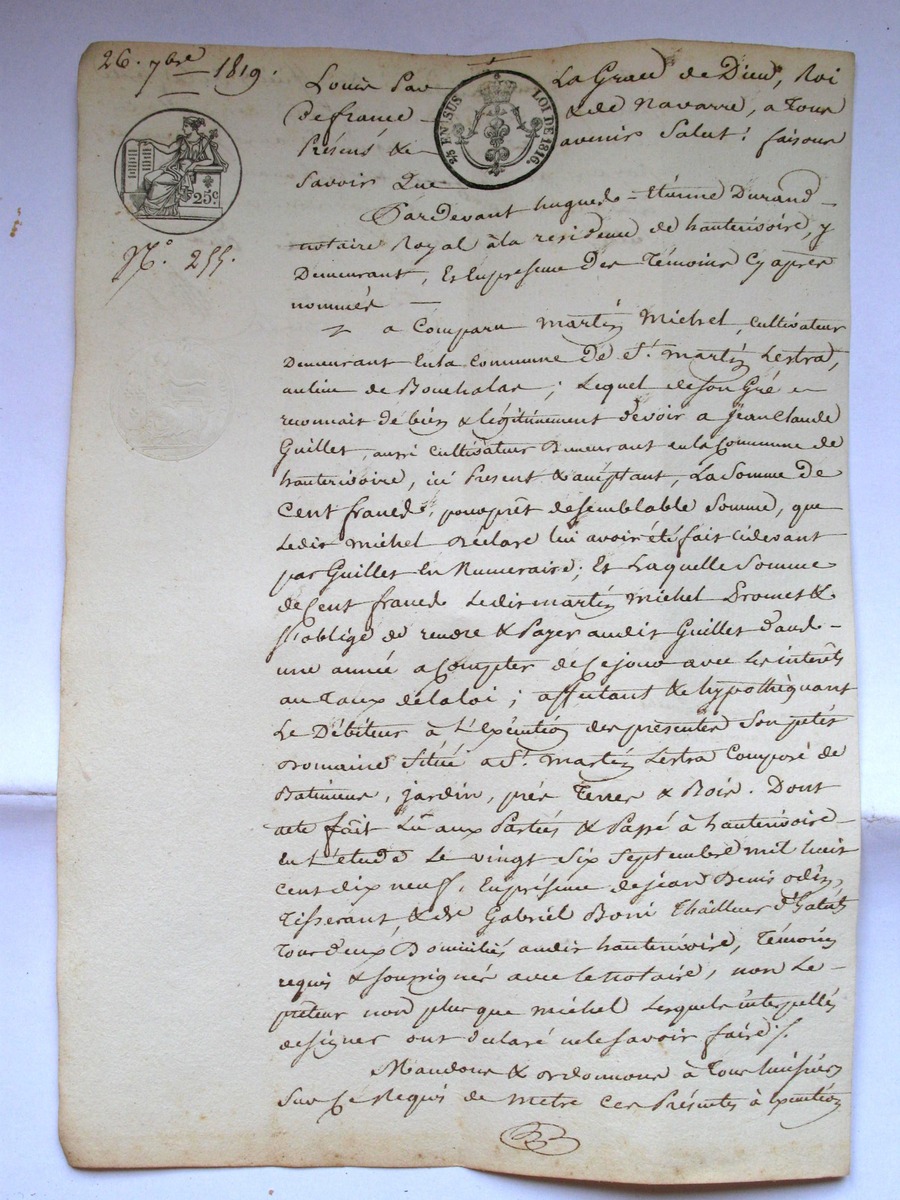 26. 7bre 1819.
Louis Par La Grace de Dieu, Roi
De france & de Navarre, a Tous
Présens & avenir Salut! faisons
Savoir Que
2/5 EN SUS LOI DE 1816.
25c
N.° 255.
Pardevant hugues-Etienne Durand
notaire Royal à la residence de hauterivoire, y
Demeurant, Et En presence Des Témoins Cy après
nommés
a Comparu Martin Michel, cultivateur
Demeurant En la commune De St. martin Lestra,
au lieu de Bouchalas; Lequel de son Gré
reconnait de bien & légitimement devoir a Jean Claude
Guillet, aussi cultivateur Demeurant en la Commune de
hauterivoire, ici Present & acceptant, La Somme De
Cent francs, pour prêt de semblable Somme, que
Ledit Michel Déclare lui avoir été fait cidevant
par Guillet En Numeraire; Et Laquelle Somme
de Cent francs Ledit martin Michel Promet &
s'oblige de rendre & Payer audit Guillet dans
une année a Compter de Ce jour avec Les interêts
au Taux de la loi; affectant & hypothéquant
Le Débiteur à L'Exécution des presentes Son petit
Domaine Situé a St. martin Lestra Composé de
Batimens, jardin, prés Terres & Bois. Dont
acte fait Lû aux Parties & Passé à hauterivoire
En L'étude Le vingt Six Septembre mil huit
Cent dix neuf, En présence de jean Denis odin
Tisserant, & de Gabriel Boni Thailleur d'habits
Tous deux Domiciliés audit hauterivoire, Témoins
requis & soussignés avec le notaire, non Le
prêteur non plus que michel Lesquels interpellés
de signer ont déclaré ne le savoir faire ./.
Mandons & ordonnons à Tous huissiers
Sur Ce Requis de metre Ces Présentes à exécution